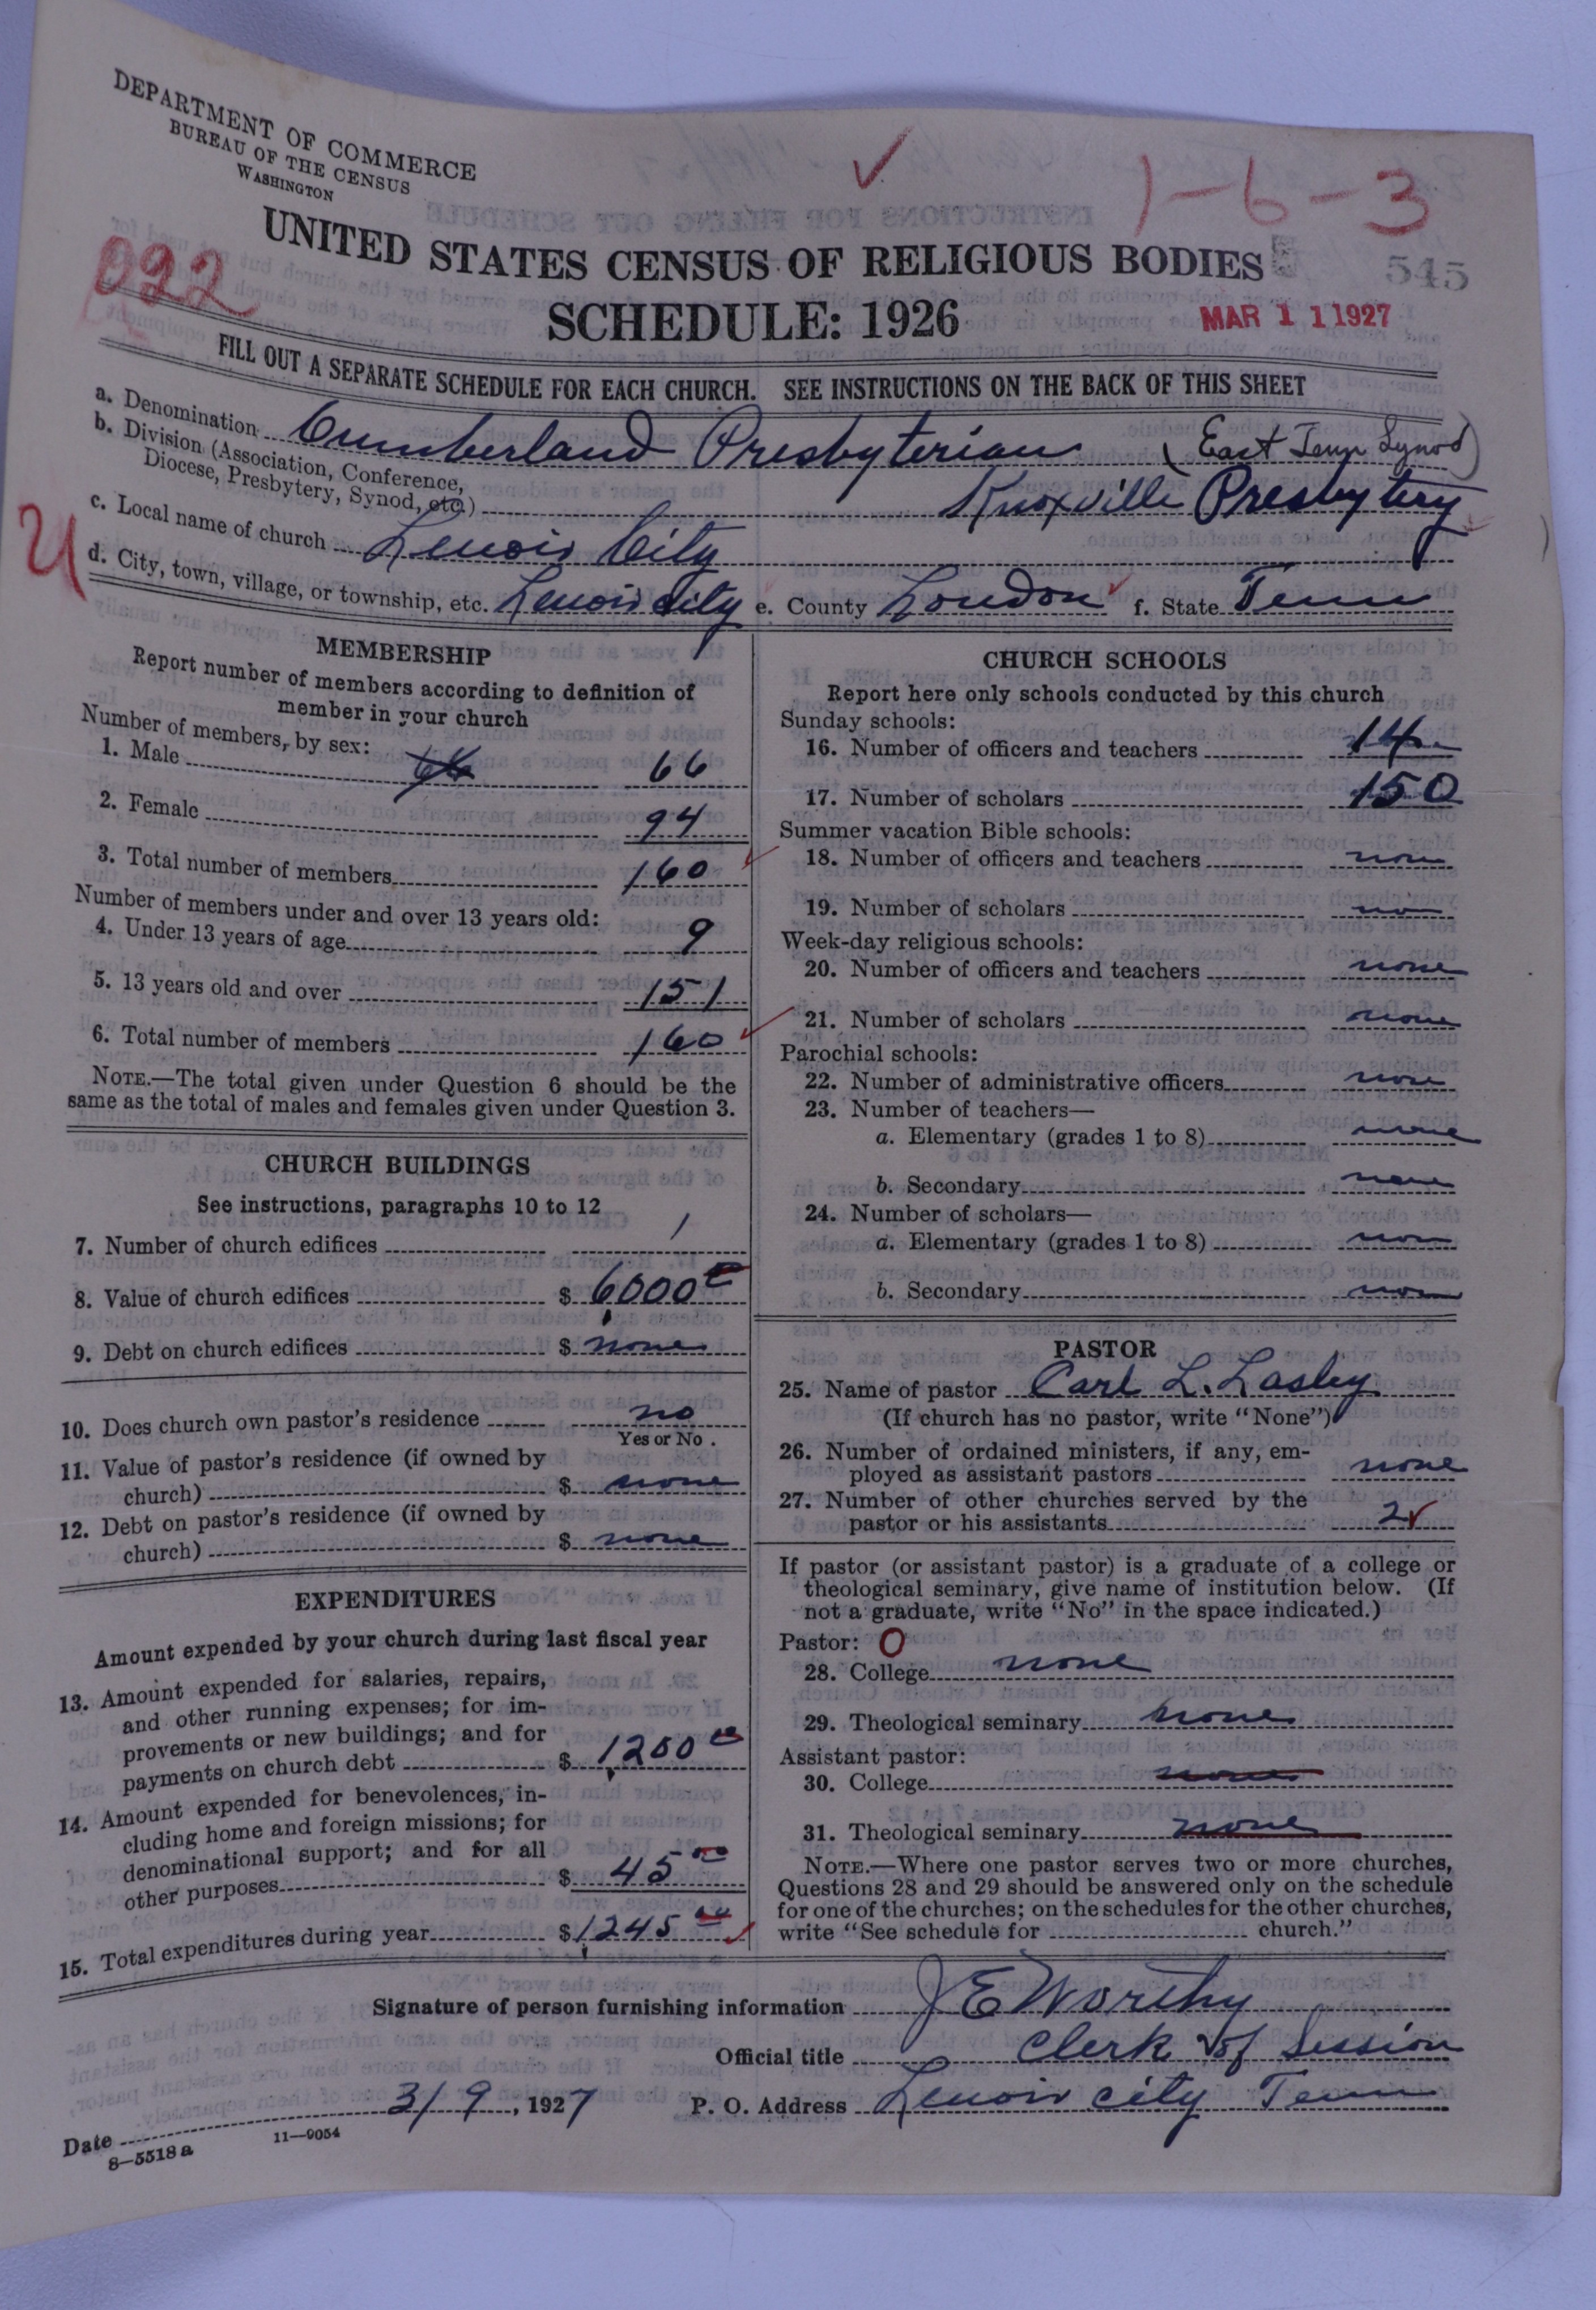 DEPARTMENT OF COMMERCE
BUREAU OF THE CENSUS
WASHINGTON
1-6-3
UNITED STATES CENSUS OF RELIGIOUS BODIES
545
022
SCHEDULE: 1926
MAR 11 1927
FILL OUT A SEPARATE SCHEDULE FOR EACH CHURCH. SEE INSTRUCTIONS ON THE BACK OF THIS SHEET
a. Denomination Cumberland Presbyterian (East Tenn Synod)
b. Division (Association, Conference,
Diocese, Presbytery, Synod, etc.) Knoxville Presbytery
U
c. Local name of church Lenoir City
d. City, town, village, or township, etc. Lenoir City e. County Loudon f. State Tenn
MEMBERSHIP
Report number of members according to definition of
member in your church
Number of members, by sex:
1. Male 66 66
2. Female 94
3. Total number of members 160
Number of members under and over 13 years old:
4. Under 13 years of age 9
5. 13 years old and over 151
6. Total number of members 160
NOTE.—The total given under Question 6 should be the
same as the total of males and females given under Question 3.
CHURCH BUILDINGS
See instructions, paragraphs 10 to 12
7. Number of church edifices 1
8. Value of church edifices $ 6,000 00
9. Debt on church edifices $ none
10. Does church own pastor's residence no
Yes or No.
11. Value of pastor's residence (if owned by
church) $ none
12. Debt on pastor's residence (if owned by
church) $ none
EXPENDITURES
Amount expended by your church during last fiscal year
13. Amount expended for salaries, repairs,
and other running expenses; for im-
provements or new buildings; and for
payments on church debt $ 1,200 00
14. Amount expended for benevolences, in-
cluding home and foreign missions; for
denominational support; and for all
other purposes $ 45 00
15. Total expenditures during year $ 1,245 00
CHURCH SCHOOLS
Report here only schools conducted by this church
Sunday schools:
16. Number of officers and teachers 14
17. Number of scholars 150
Summer vacation Bible schools:
18. Number of officers and teachers none
19. Number of scholars no
Week-day religious schools:
20. Number of officers and teachers none
21. Number of scholars none
Parochial schools:
22. Number of administrative officers none
23. Number of teachers—
a. Elementary (grades 1 to 8) none
b. Secondary none
24. Number of scholars—
a. Elementary (grades 1 to 8) none
b. Secondary none
PASTOR
25. Name of pastor Carl L. Lasley
(If church has no pastor, write "None")
26. Number of ordained ministers, if any, em-
ployed as assistant pastors none
27. Number of other churches served by the
pastor or his assistants 2
If pastor (or assistant pastor) is a graduate of a college or
theological seminary, give name of institution below. (If
not a graduate, write "No" in the space indicated.)
Pastor: O
28. College none
29. Theological seminary none
Assistant pastor:
30. College none
31. Theological seminary none
NOTE.—Where one pastor serves two or more churches,
Questions 28 and 29 should be answered only on the schedule
for one of the churches; on the schedules for the other churches,
write "See schedule for church."
Signature of person furnishing information J E Worthy
Official title Clerk of Session
Date 3/9, 1927 P. O. Address Lenoir City Tenn
8—5518a 11—9054